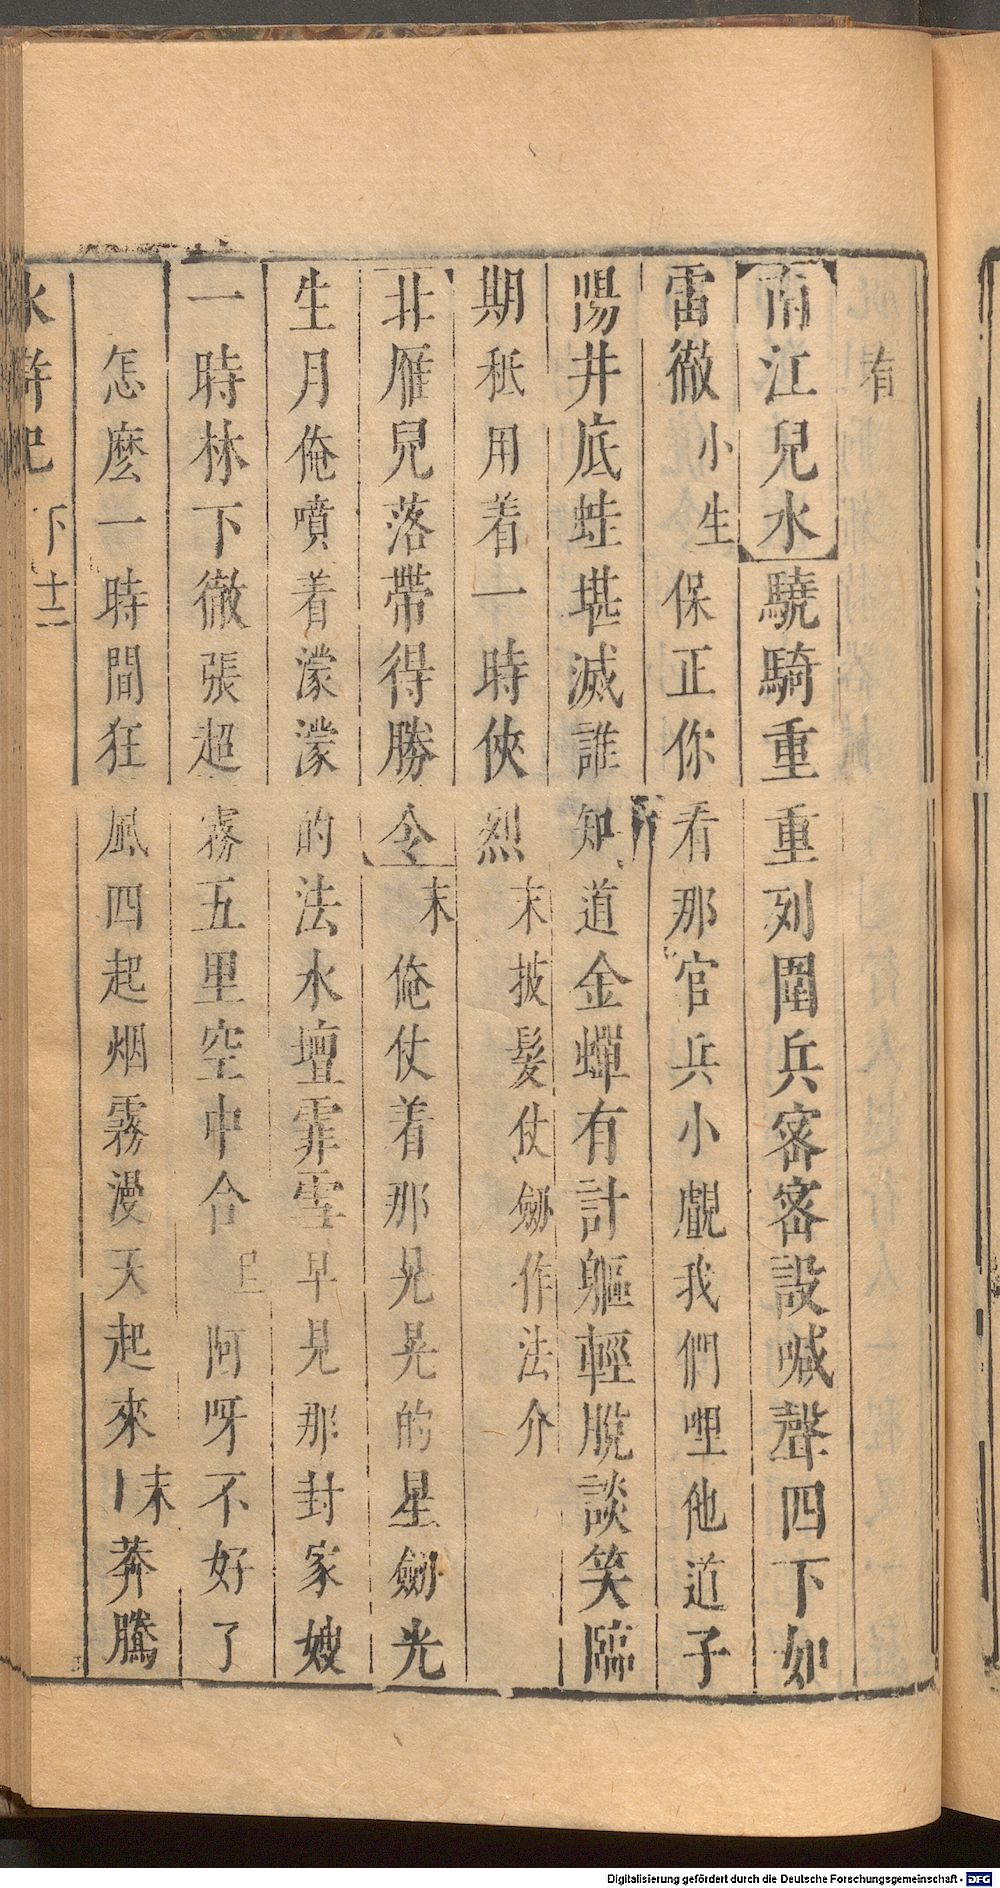 有
南江兒水驍騎重重列圍兵密密設喊聲四下如
雷徹小生保正你看那官兵小覷我們哩他道子
陽井底蛙堪滅誰知道金蟬有計軀輕脫談笑臨
期秪用着一時俠烈末披髮仗劒作法介
北雁兒落帶得勝令末俺仗着那晃晃的星劒光
生月俺噴着濛濛的法水壇霏雪早見那封家嫂
一時林下徹張超霧五里空中合阿呀不好了
怎麽一時間狂風四起烟霧漫天起來末莽騰
水滸記 下 十二
Digitalisierung gefördert durch die Deutsche Forschungsgemeinschaft - DFG